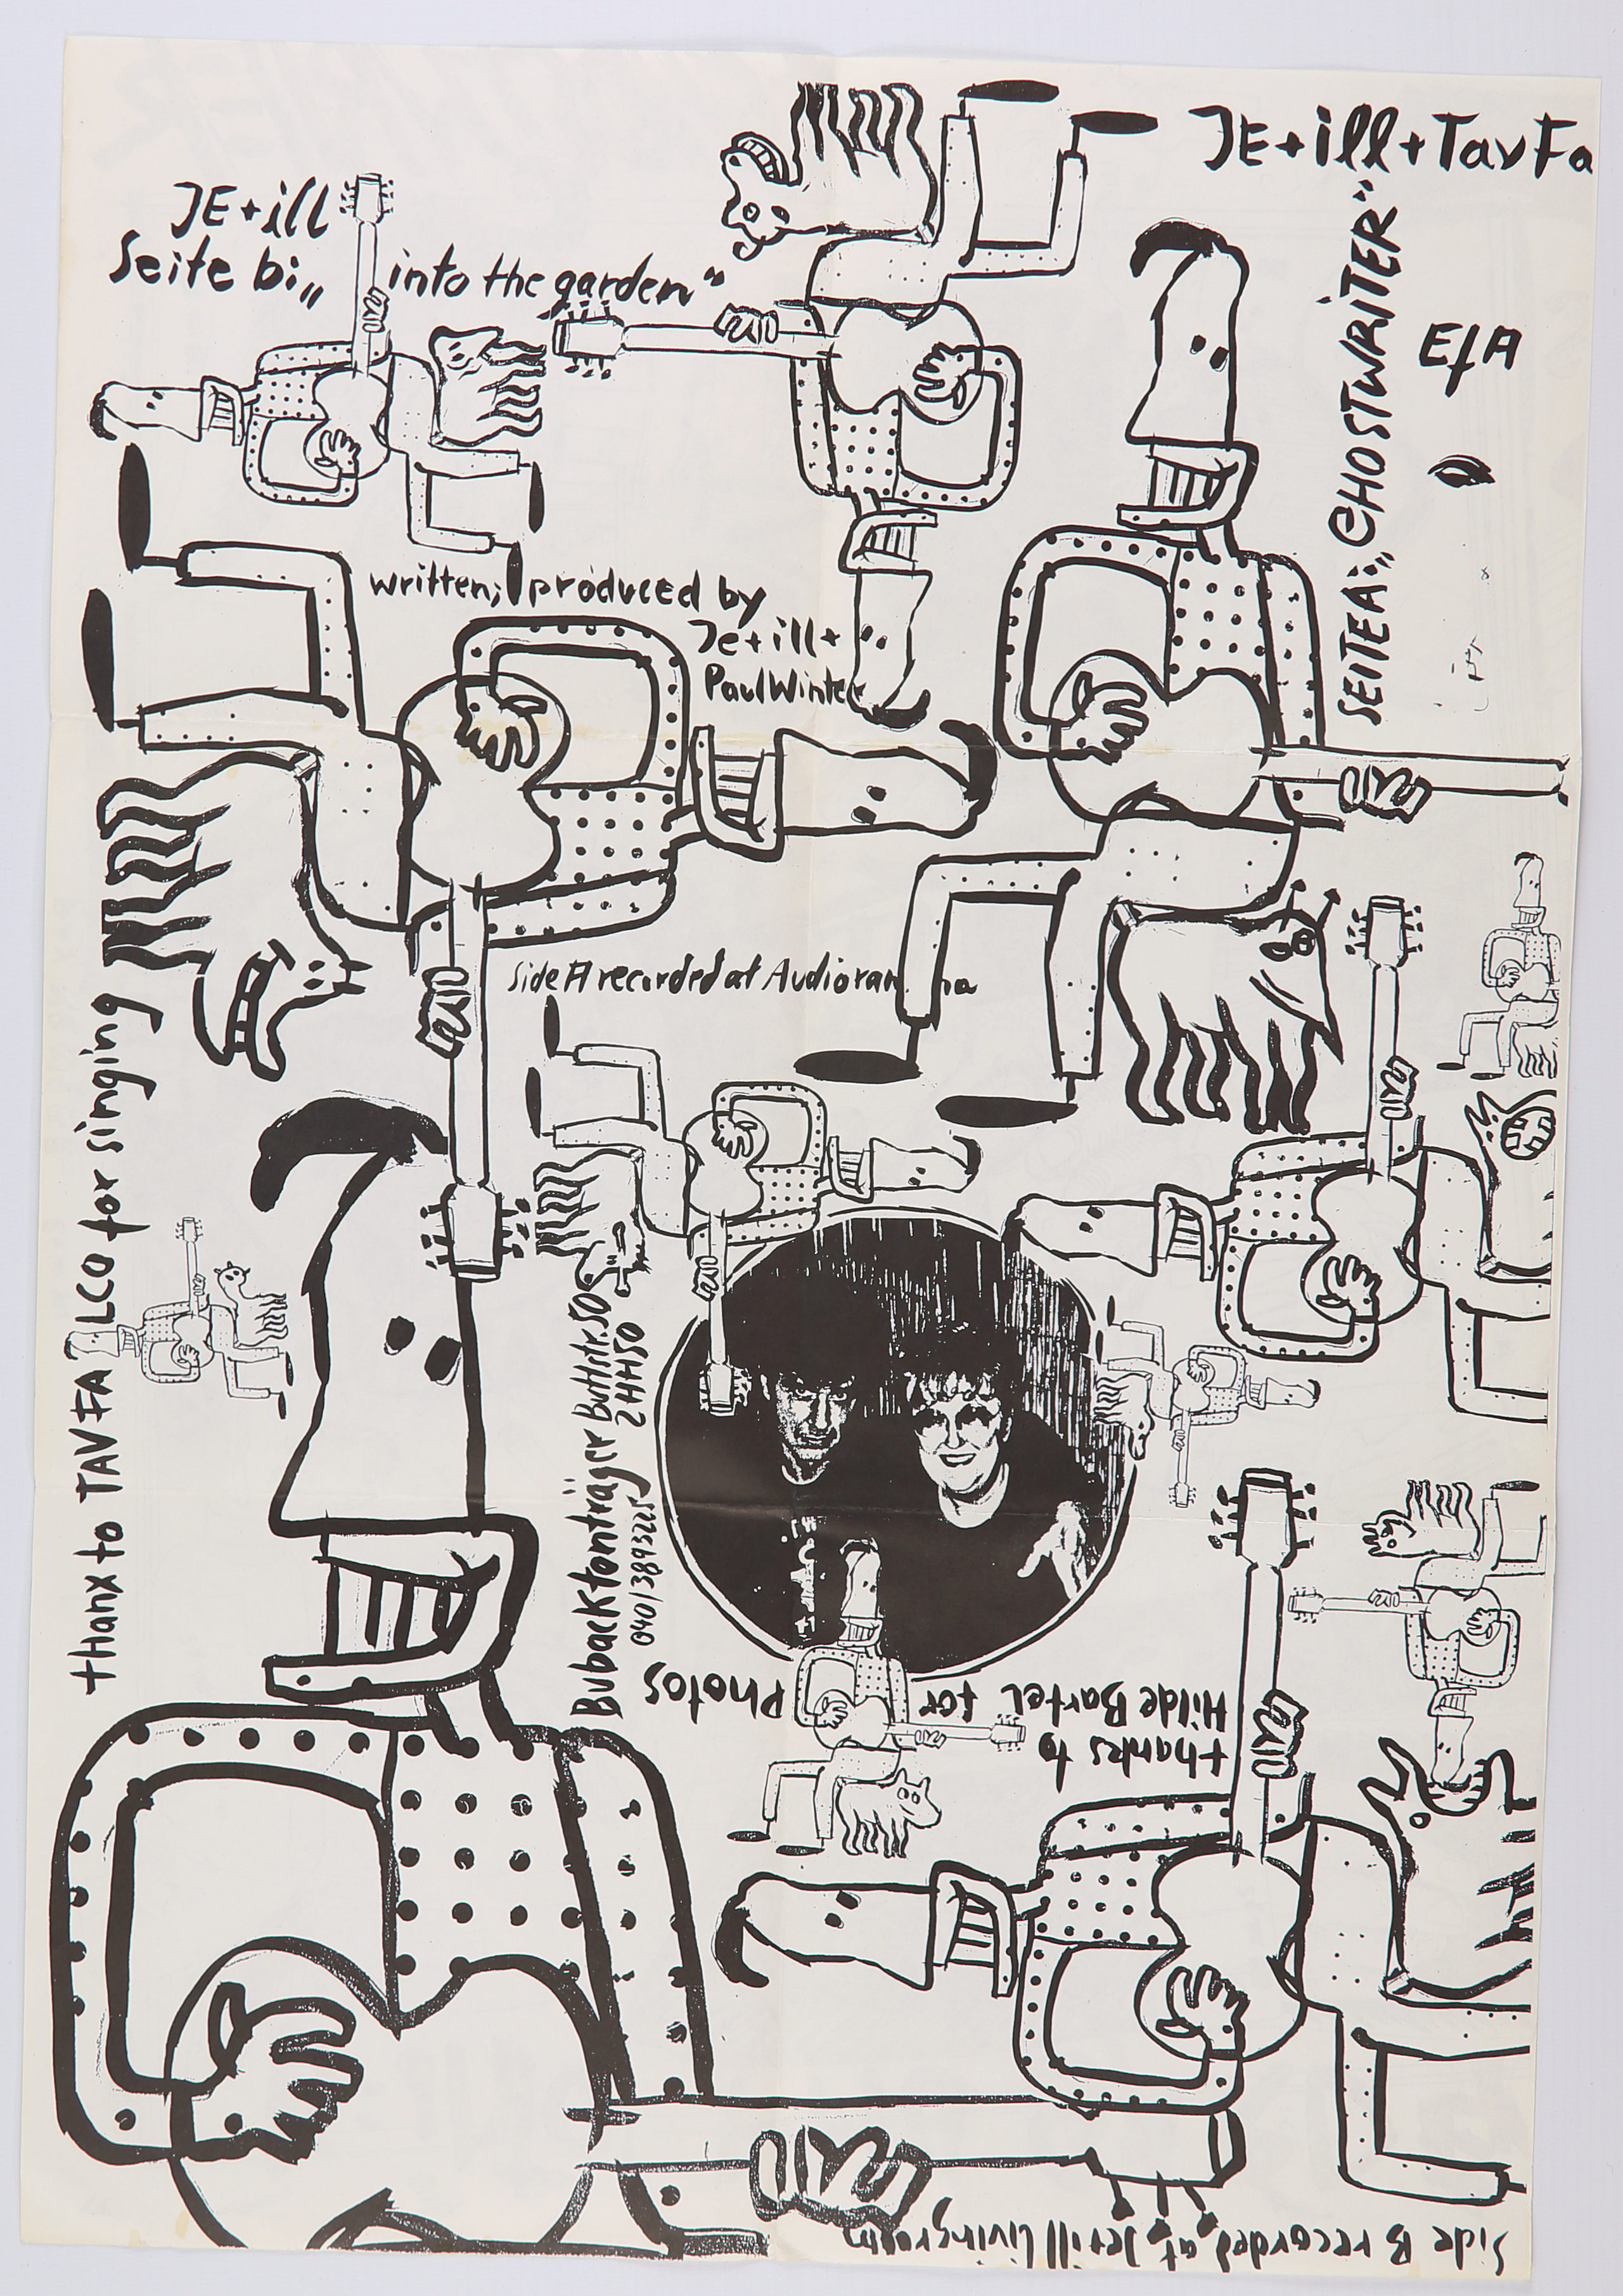 JE+ill+Tav Fa
JE+ill
Seite bi„ into the garden“
SEITEA:„CHOSTWRITER“
EfA
written; produced by
Je+ill+
Paul Winter
Side A recorded at Audiorama
thanx to TAV FALCO for singing
Buback tonträger Buttstr. 50
2 HH 50
040/3893225
thanks to
Hilde Bartel for Photos
Side B recorded at Je+ill livingroom